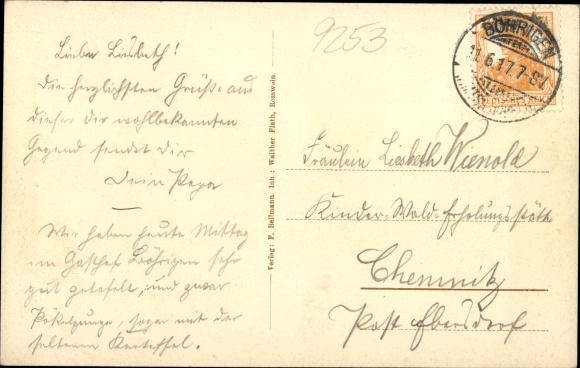 9253
BÖHRIGEN
11.6.17.7-8V
Lieber Lisbeth!
Die herzlichsten Grüße aus
dieser dir wohlbekannten
Gegend sendet dir
Dein Papa
—
Wir haben heute Mittag
im Gasthof Böhrigen sehr
gut getafelt, und zwar
Pökelzunge, sogar mit der
seltenen Kartoffel.
Verlag: F. Bellmann. Inh.: Walther Flath, Rosswein.
Fräulein Lisbeth Wienold
Kinder-Wald-Erholungsstätte
Chemnitz
Post Ebersdorf